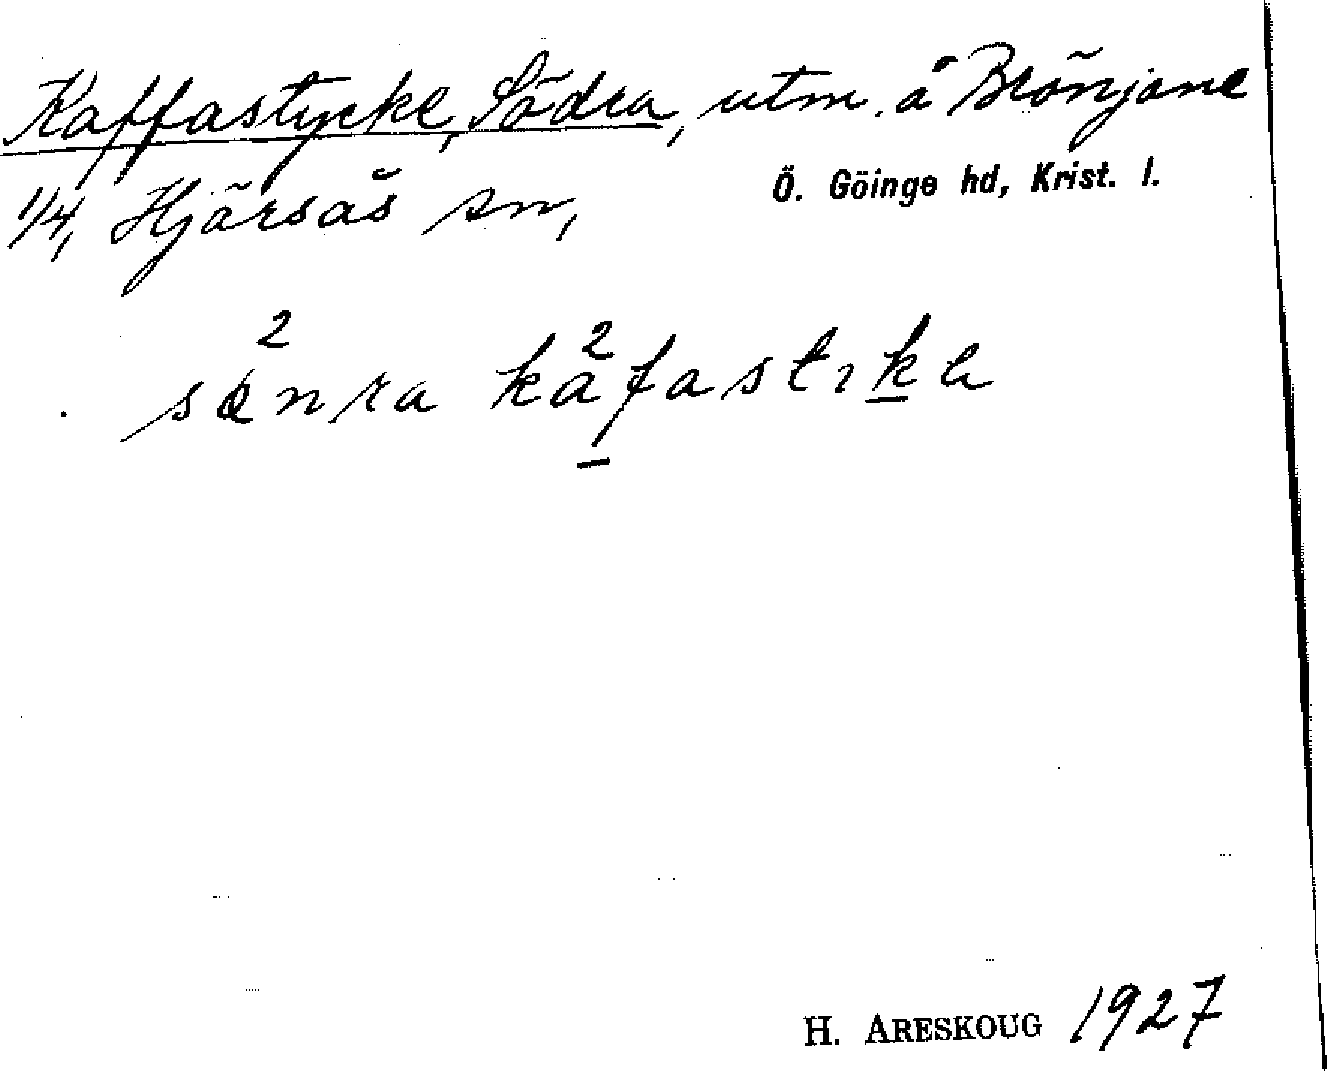 Kaffastycke, Södra, utm. å Brönjane
1/4, Hjärsås sn, Ö. Göinge hd, Krist. l.
H. ARESKOUG 1927